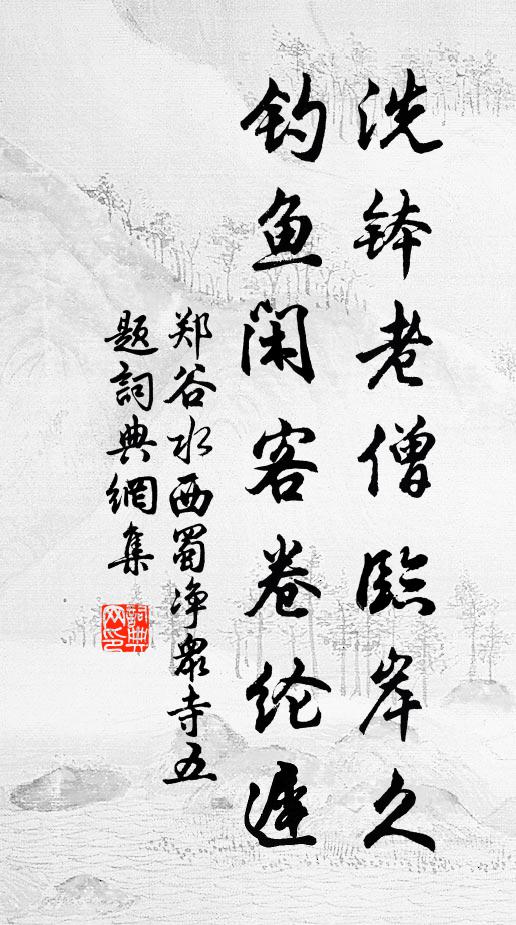 洗钵老僧临岸久
钓鱼闲客卷纶迟
郑谷水西蜀净众寺五
题词典网集
词典网印